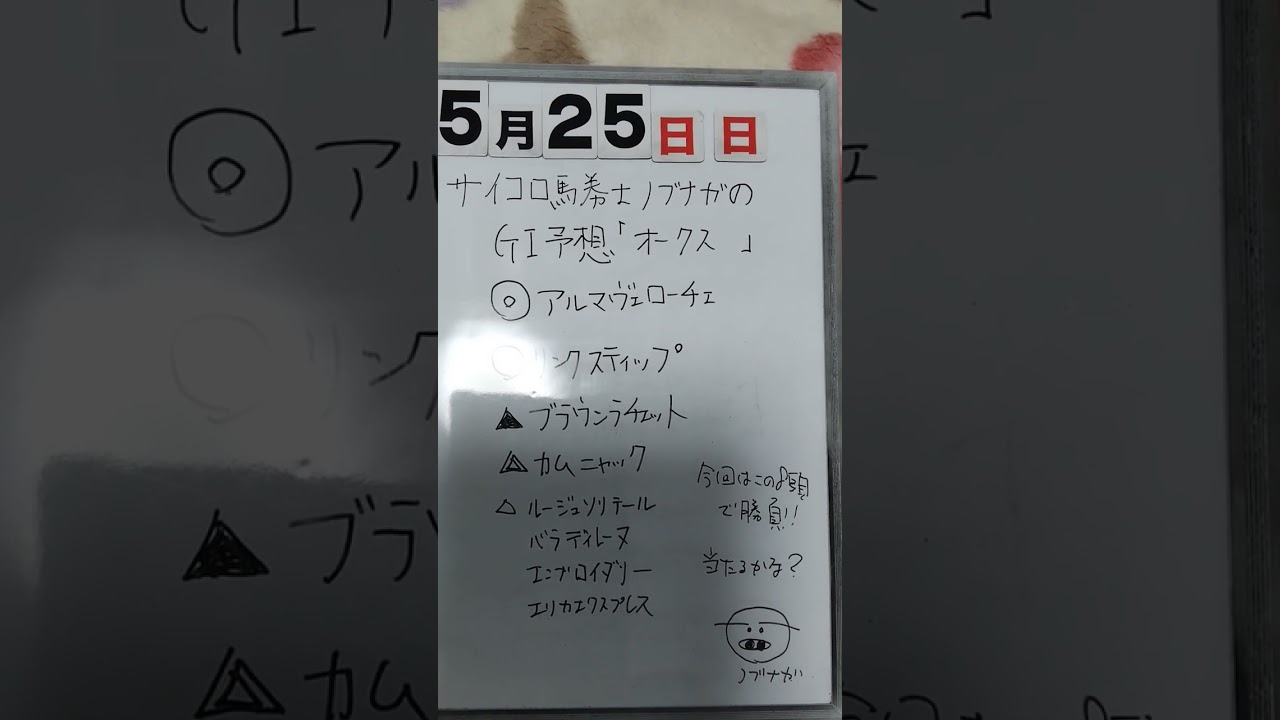 5月25日 日
サイコロ馬券士ノブナガの
GI予想「オークス」
◎アルマヴェローチェ
○リンクスティップ
▲ブラウンラチェット
カムニャック
△ルージュソリテール
パラディレーヌ
エンブロイダリー
エリカエクスプレス
今回はこの8頭
で勝負!!
当たるかな?
ノブナガ